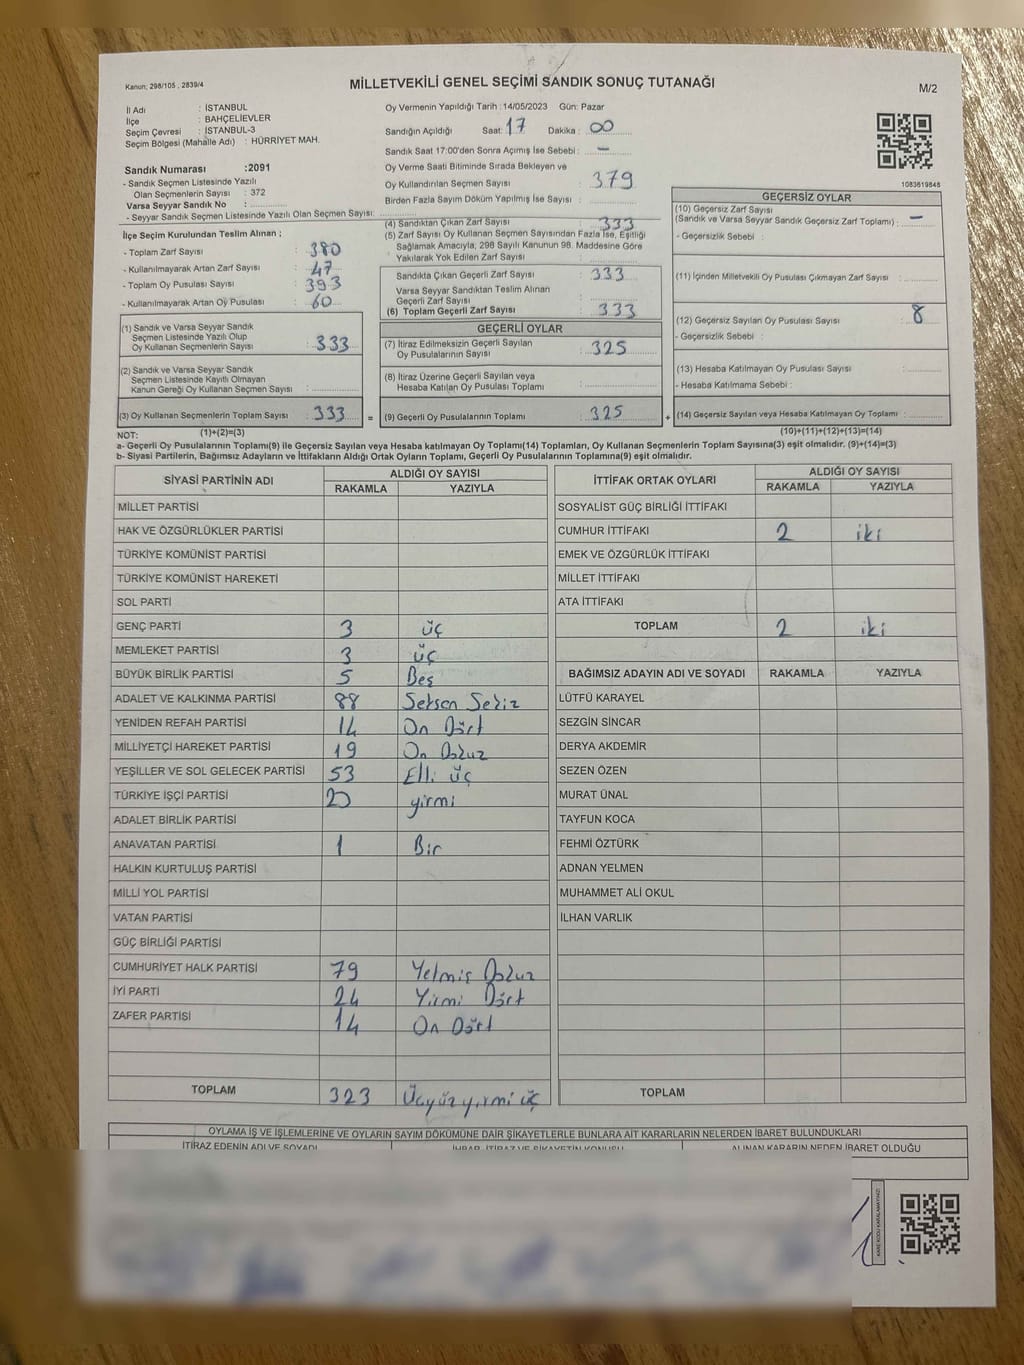 Kanun; 298/105 , 2839/4
MİLLETVEKİLİ GENEL SEÇİMİ SANDIK SONUÇ TUTANAĞI
M/2
İl Adı : İSTANBUL
İlçe : BAHÇELİEVLER
Seçim Çevresi : İSTANBUL-3
Seçim Bölgesi (Mahalle Adı) : HÜRRİYET MAH.
Oy Vermenin Yapıldığı Tarih : 14/05/2023 Gün: Pazar
Sandığın Açıldığı Saat: 17 Dakika : 00
Sandık Saat 17:00'den Sonra Açımış İse Sebebi : –
Oy Verme Saati Bitiminde Sırada Bekleyen ve
Oy Kullandırılan Seçmen Sayısı : 379
Birden Fazla Sayım Döküm Yapılmış İse Sayısı :
1083619848
Sandık Numarası :2091
- Sandık Seçmen Listesinde Yazılı
Olan Seçmenlerin Sayısı : 372
Varsa Seyyar Sandık No :
- Seyyar Sandık Seçmen Listesinde Yazılı Olan Seçmen Sayısı:
İlçe Seçim Kurulundan Teslim Alınan ;
- Toplam Zarf Sayısı : 380
- Kullanılmayarak Artan Zarf Sayısı : 47
- Toplam Oy Pusulası Sayısı : 393
- Kullanılmayarak Artan Oy Pusulası : 60
(1) Sandık ve Varsa Seyyar Sandık
Seçmen Listesinde Yazılı Olup
Oy Kullanan Seçmenlerin Sayısı : 333
(2) Sandık ve Varsa Seyyar Sandık
Seçmen Listesinde Kayıtlı Olmayan
Kanun Gereği Oy Kullanan Seçmen Sayısı :
(3) Oy Kullanan Seçmenlerin Toplam Sayısı : 333 =
(1)+(2)=(3)
(4) Sandıktan Çıkan Zarf Sayısı : 333
(5) Zarf Sayısı Oy Kullanan Seçmen Sayısından Fazla İse, Eşitliği
Sağlamak Amacıyla; 298 Sayılı Kanunun 98. Maddesine Göre
Yakılarak Yok Edilen Zarf Sayısı :
Sandıkta Çıkan Geçerli Zarf Sayısı : 333
Varsa Seyyar Sandıktan Teslim Alınan
Geçerli Zarf Sayısı :
(6) Toplam Geçerli Zarf Sayısı : 333
GEÇERLİ OYLAR
(7) İtiraz Edilmeksizin Geçerli Sayılan
Oy Pusulalarının Sayısı : 325
(8) İtiraz Üzerine Geçerli Sayılan veya
Hesaba Katılan Oy Pusulası Toplamı :
(9) Geçerli Oy Pusulalarının Toplamı : 325 +
GEÇERSİZ OYLAR
(10) Geçersiz Zarf Sayısı
(Sandık ve Varsa Seyyar Sandık Geçersiz Zarf Toplamı) : –
- Geçersizlik Sebebi :
(11) İçinden Milletvekili Oy Pusulası Çıkmayan Zarf Sayısı :
(12) Geçersiz Sayılan Oy Pusulası Sayısı : 8
- Geçersizlik Sebebi :
(13) Hesaba Katılmayan Oy Pusulası Sayısı :
- Hesaba Katılmama Sebebi :
(14) Geçersiz Sayılan veya Hesaba Katılmayan Oy Toplamı :
(10)+(11)+(12)+(13)=(14)
NOT:
a- Geçerli Oy Pusulalarının Toplamı(9) ile Geçersiz Sayılan veya Hesaba katılmayan Oy Toplamı(14) Toplamları, Oy Kullanan Seçmenlerin Toplam Sayısına(3) eşit olmalıdır. (9)+(14)=(3)
b- Siyasi Partilerin, Bağımsız Adayların ve İttifakların Aldığı Ortak Oyların Toplamı, Geçerli Oy Pusulalarının Toplamına(9) eşit olmalıdır.
SİYASİ PARTİNİN ADI ALDIĞI OY SAYISI
RAKAMLA YAZIYLA
MİLLET PARTİSİ
HAK VE ÖZGÜRLÜKLER PARTİSİ
TÜRKİYE KOMÜNİST PARTİSİ
TÜRKİYE KOMÜNİST HAREKETİ
SOL PARTİ
GENÇ PARTİ 3 üç
MEMLEKET PARTİSİ 3 üç
BÜYÜK BİRLİK PARTİSİ 5 Beş
ADALET VE KALKINMA PARTİSİ 88 Seksen Sekiz
YENİDEN REFAH PARTİSİ 14 On Dört
MİLLİYETÇİ HAREKET PARTİSİ 19 On Dokuz
YEŞİLLER VE SOL GELECEK PARTİSİ 53 Elli üç
TÜRKİYE İŞÇİ PARTİSİ 20 yirmi
ADALET BİRLİK PARTİSİ
ANAVATAN PARTİSİ 1 Bir
HALKIN KURTULUŞ PARTİSİ
MİLLİ YOL PARTİSİ
VATAN PARTİSİ
GÜÇ BİRLİĞİ PARTİSİ
CUMHURİYET HALK PARTİSİ 79 Yetmiş Dokuz
İYİ PARTİ 24 Yirmi Dört
ZAFER PARTİSİ 14 On Dört
TOPLAM 323 Üçyüzyirmi üç
İTTİFAK ORTAK OYLARI ALDIĞI OY SAYISI
RAKAMLA YAZIYLA
SOSYALİST GÜÇ BİRLİĞİ İTTİFAKI
CUMHUR İTTİFAKI 2 iki
EMEK VE ÖZGÜRLÜK İTTİFAKI
MİLLET İTTİFAKI
ATA İTTİFAKI
TOPLAM 2 iki
BAĞIMSIZ ADAYIN ADI VE SOYADI RAKAMLA YAZIYLA
LÜTFÜ KARAYEL
SEZGİN SİNCAR
DERYA AKDEMİR
SEZEN ÖZEN
MURAT ÜNAL
TAYFUN KOCA
FEHMİ ÖZTÜRK
ADNAN YELMEN
MUHAMMET ALİ OKUL
İLHAN VARLIK
TOPLAM
OYLAMA İŞ VE İŞLEMLERİNE VE OYLARIN SAYIM DÖKÜMÜNE DAİR ŞİKAYETLERLE BUNLARA AİT KARARLARIN NELERDEN İBARET BULUNDUKLARI
İTİRAZ EDENİN ADI VE SOYADI İHBAR, İTİRAZ VE ŞİKAYETİN KONUSU ALINAN KARARIN NEDEN İBARET OLDUĞU
KARE KODU KARALAMAYINIZ!